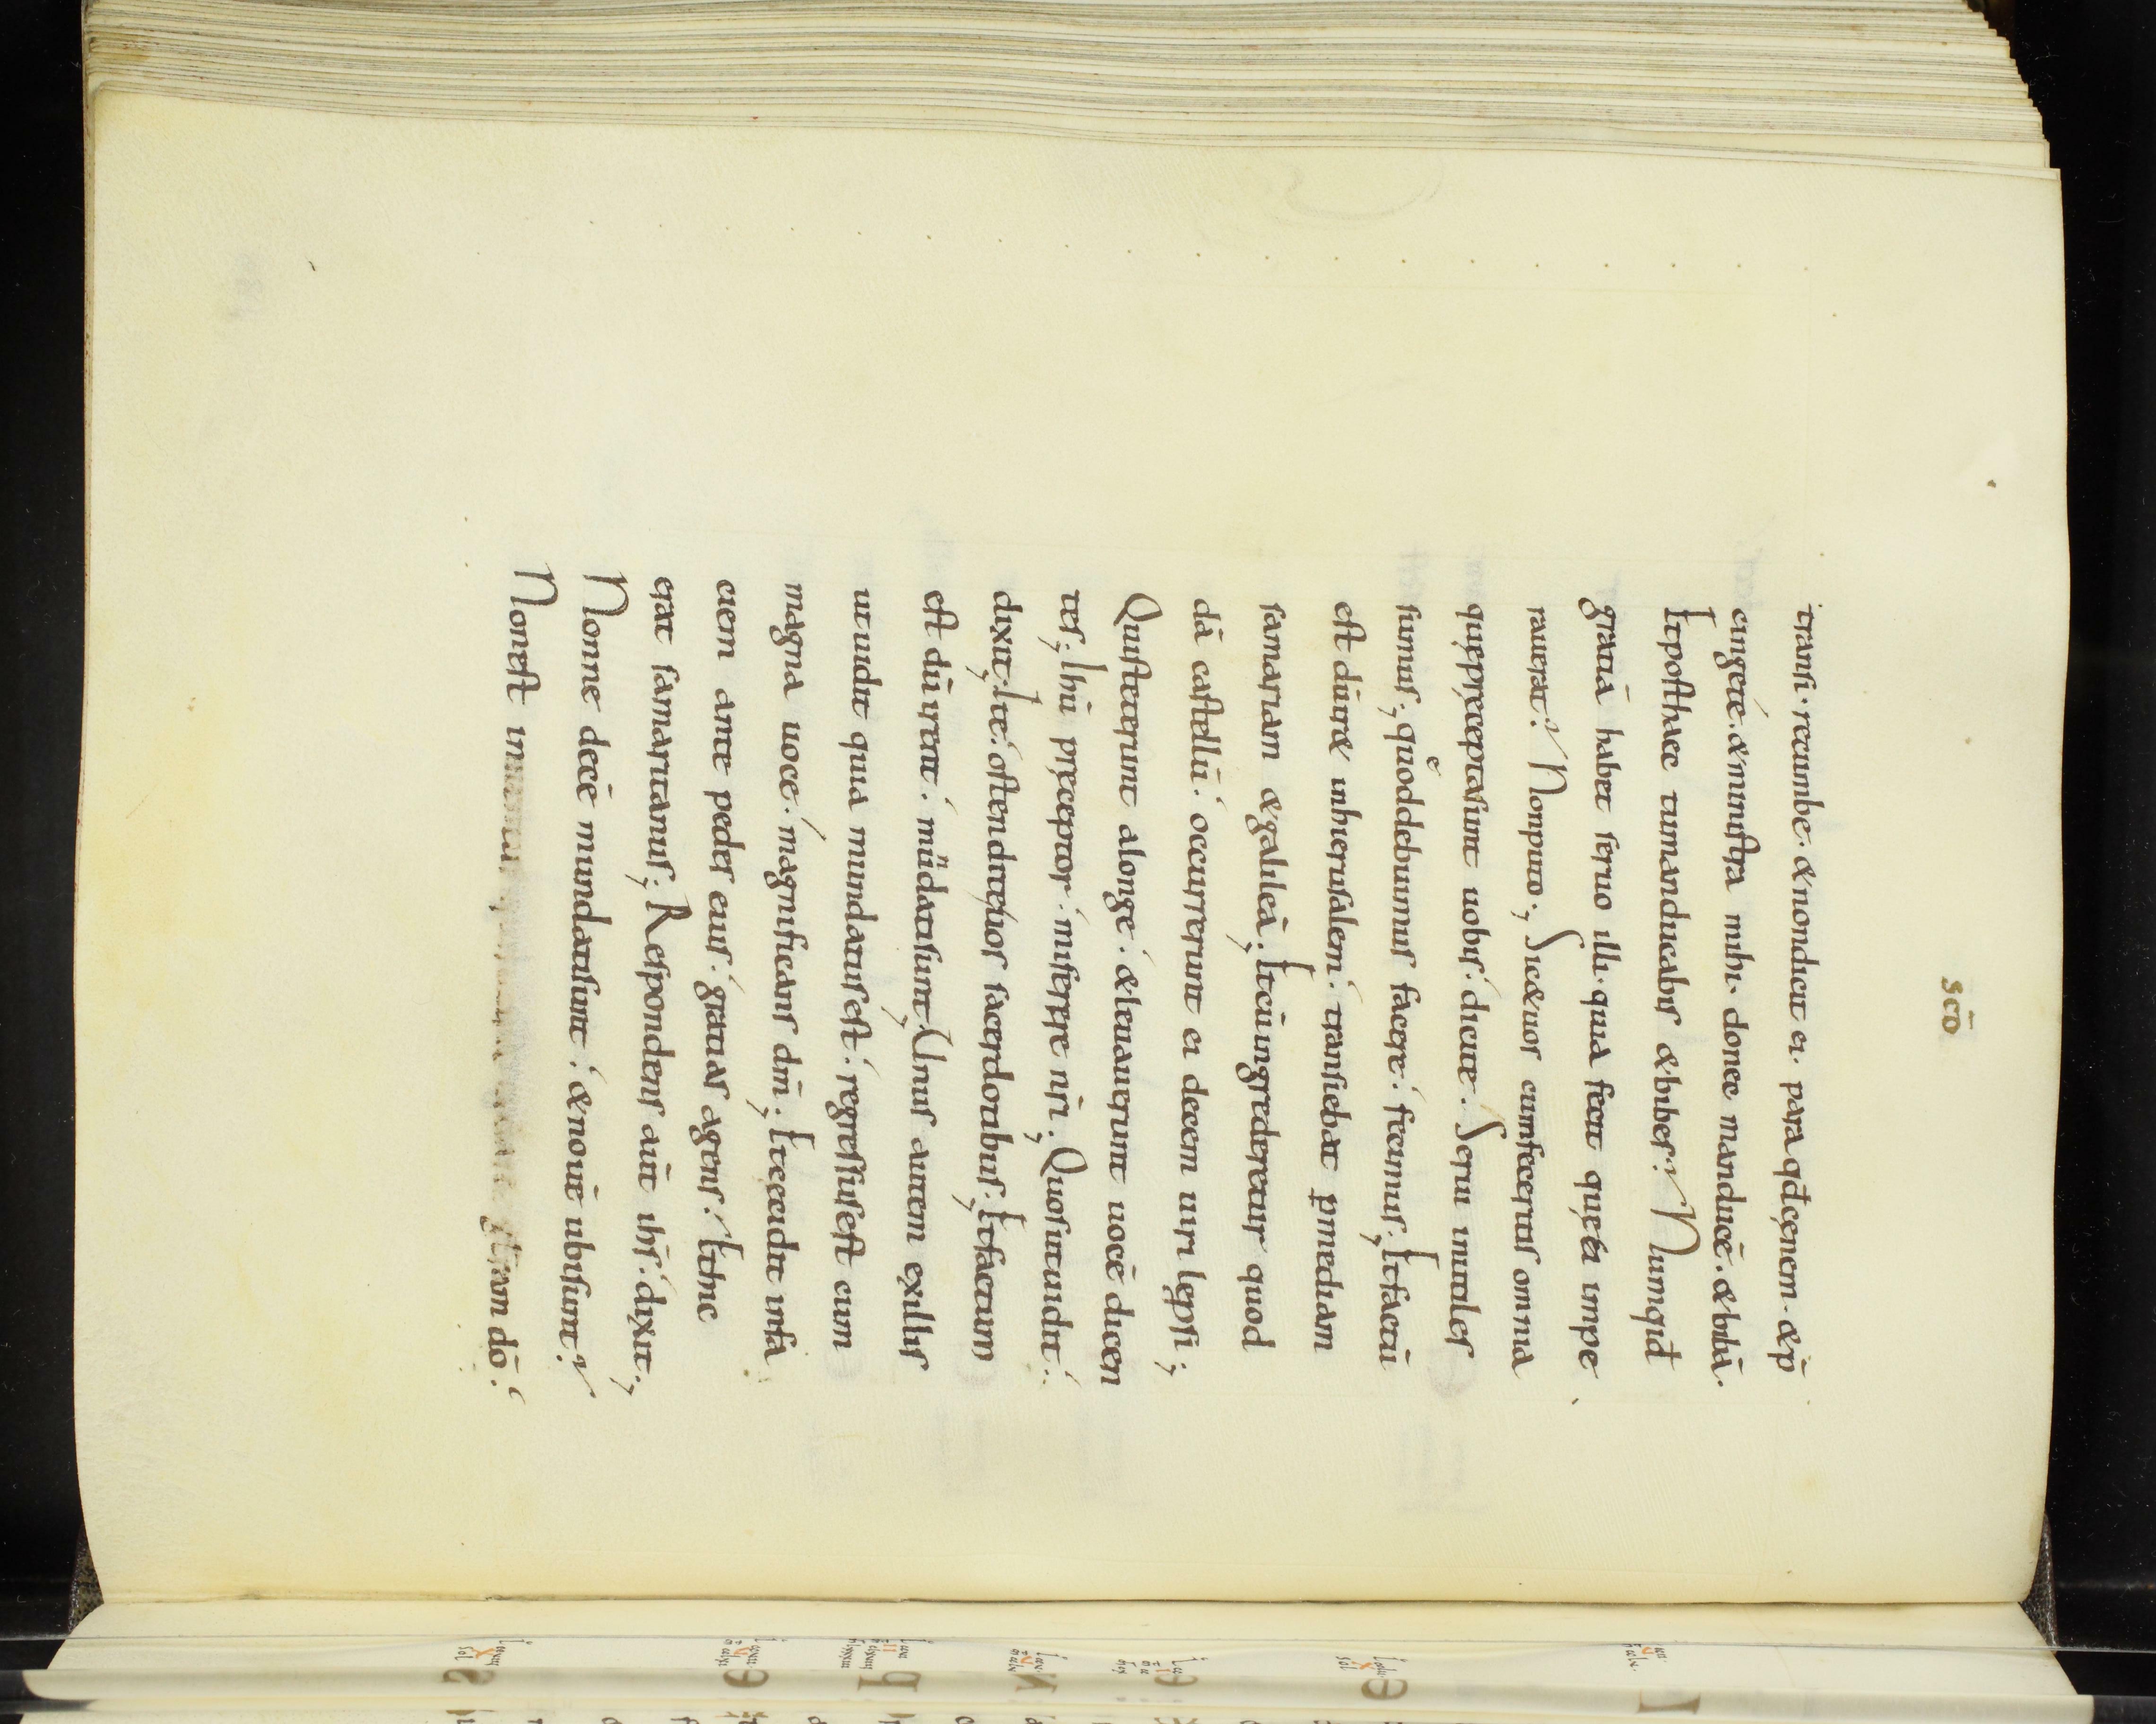 scđ
transi · recumbe · & nondicit ei · para qđcęnem · & p̄
cingere · & ministra mihi · donec manducē · & bibā ·
Et posthaec tumanducabis & bibes? Numqid
gratiā habet seruo illi · quia fecit quę ei impe
rauerat? Nonputo ; Sic & uos cumfeceritis omnia
quępręceptasunt uobis · dicite · Serui inutiles
sumus ; quoddebuimus facere · fecimus ; Etfactū
est dū iret inhierusalem · transiebat p mediam
samariam & galileā ; Etcū ingrederetur quod
dā castellū · occurrerunt ei decem uiri leprsi ;
Quisteterunt alonge · & leuauerunt uocē dicen
tes ; Ihū pręceptor · miserere nr̄i ; Quosutuidit ·
dixit ; Ite · ostenditeuos sacerdotibus ; Etfactum
est dū irent · mūdatisunt ; Unus autem exillis
utuidit quia mundatusest · regressusest cum
magna uoce · magnificans dm̄ ; Etcecidit infa
ciem ante pedes eius · gratias agens · Ethic
erat samaritanus ; Respondens aūt ihs · dixit ;
Nonne decē mundatisunt · & nouē ubisunt?
Nonest gl̄iam dō ·